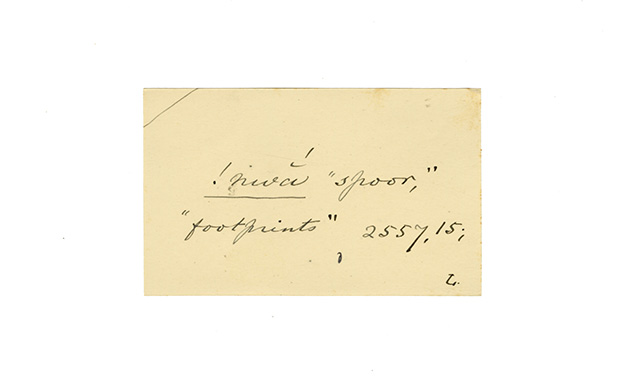 !nwắ "spoor,"
"footprints" 2557,15;
L.